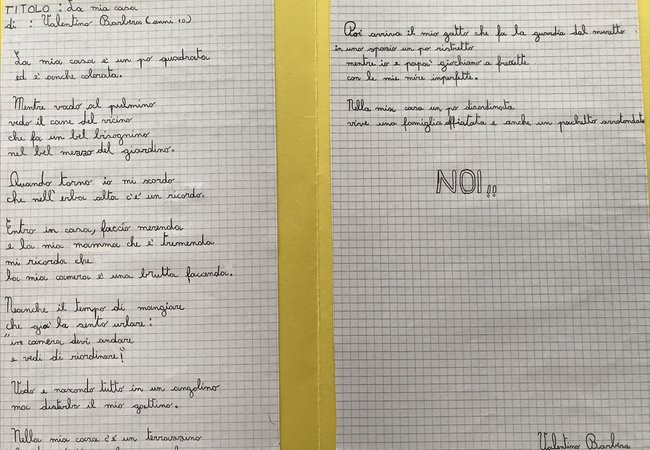 TITOLO : La mia casa
di : Valentino Barbera (anni 10)
La mia casa è un po quadrata
ed è anche colorata.
Mentre vado al pulmino
vedo il cane del vicino
che fa un bel bisognino
nel bel mezzo del giardino.
Quando torno io mi scordo
che nell'erba alta c'è un ricordo.
Entro in casa, faccio merenda
e la mia mamma che è tremenda
mi ricorda che
la mia camera è una brutta faccenda.
Neanche il tempo di mangiare
che già la sento urlare:
"in camera devi andare
e vedi di riordinare!"
Vado e nascondo tutto in un angolino
ma disturbo il mio gattino.
Nella mia casa c'è un terrazzino
Poi arriva il mio gatto che fa la guardia dal muretto
in uno spazio un po ristretto
mentre io e papa' giochiamo a freccette
con le mie mire imperfette.
Nella mia casa un po disordinata
vive una famiglia affiatata e anche un pochetto arrotondata
NOI!!
Valentino Barbera